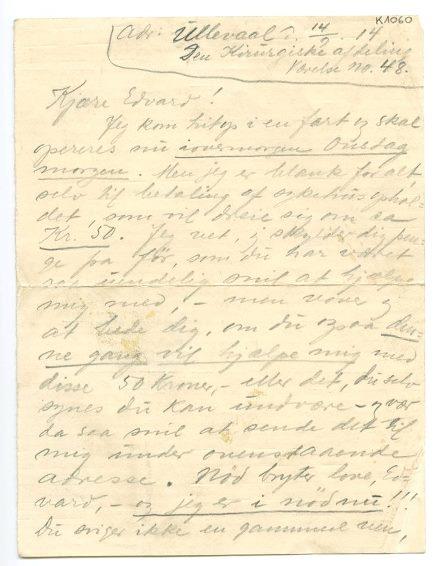 K1060
Adr: Ullevaal S. 14/9. 14
Den Kirurgiske afdeling
Værelse No. 48.
Kjære Edvard!
Jeg kom hitop i en fart og skal
opereres nu iovermorgen Onsdag
morgen. Men jeg er blank for alt,
selv til betaling af sykehusophol-
det, som vil dreie sig om ca
Kr. 50. Jeg vet, j skylder dig pen-
ge fra før, som du har været
saa uendelig snil at hjælpe
mig med, – men vover jeg
at bede dig, om du ogsaa den-
ne gang vil hjælpe mig med
disse 50 Kroner, – eller det, du selv
synes du kan undvære – og vær
da saa snil at sende det til
mig under ovenstaaende
adresse. Nød bryter love, Ed-
vard, – og jeg er i nød nu!!!
Du sviger ikke en gammel ven,